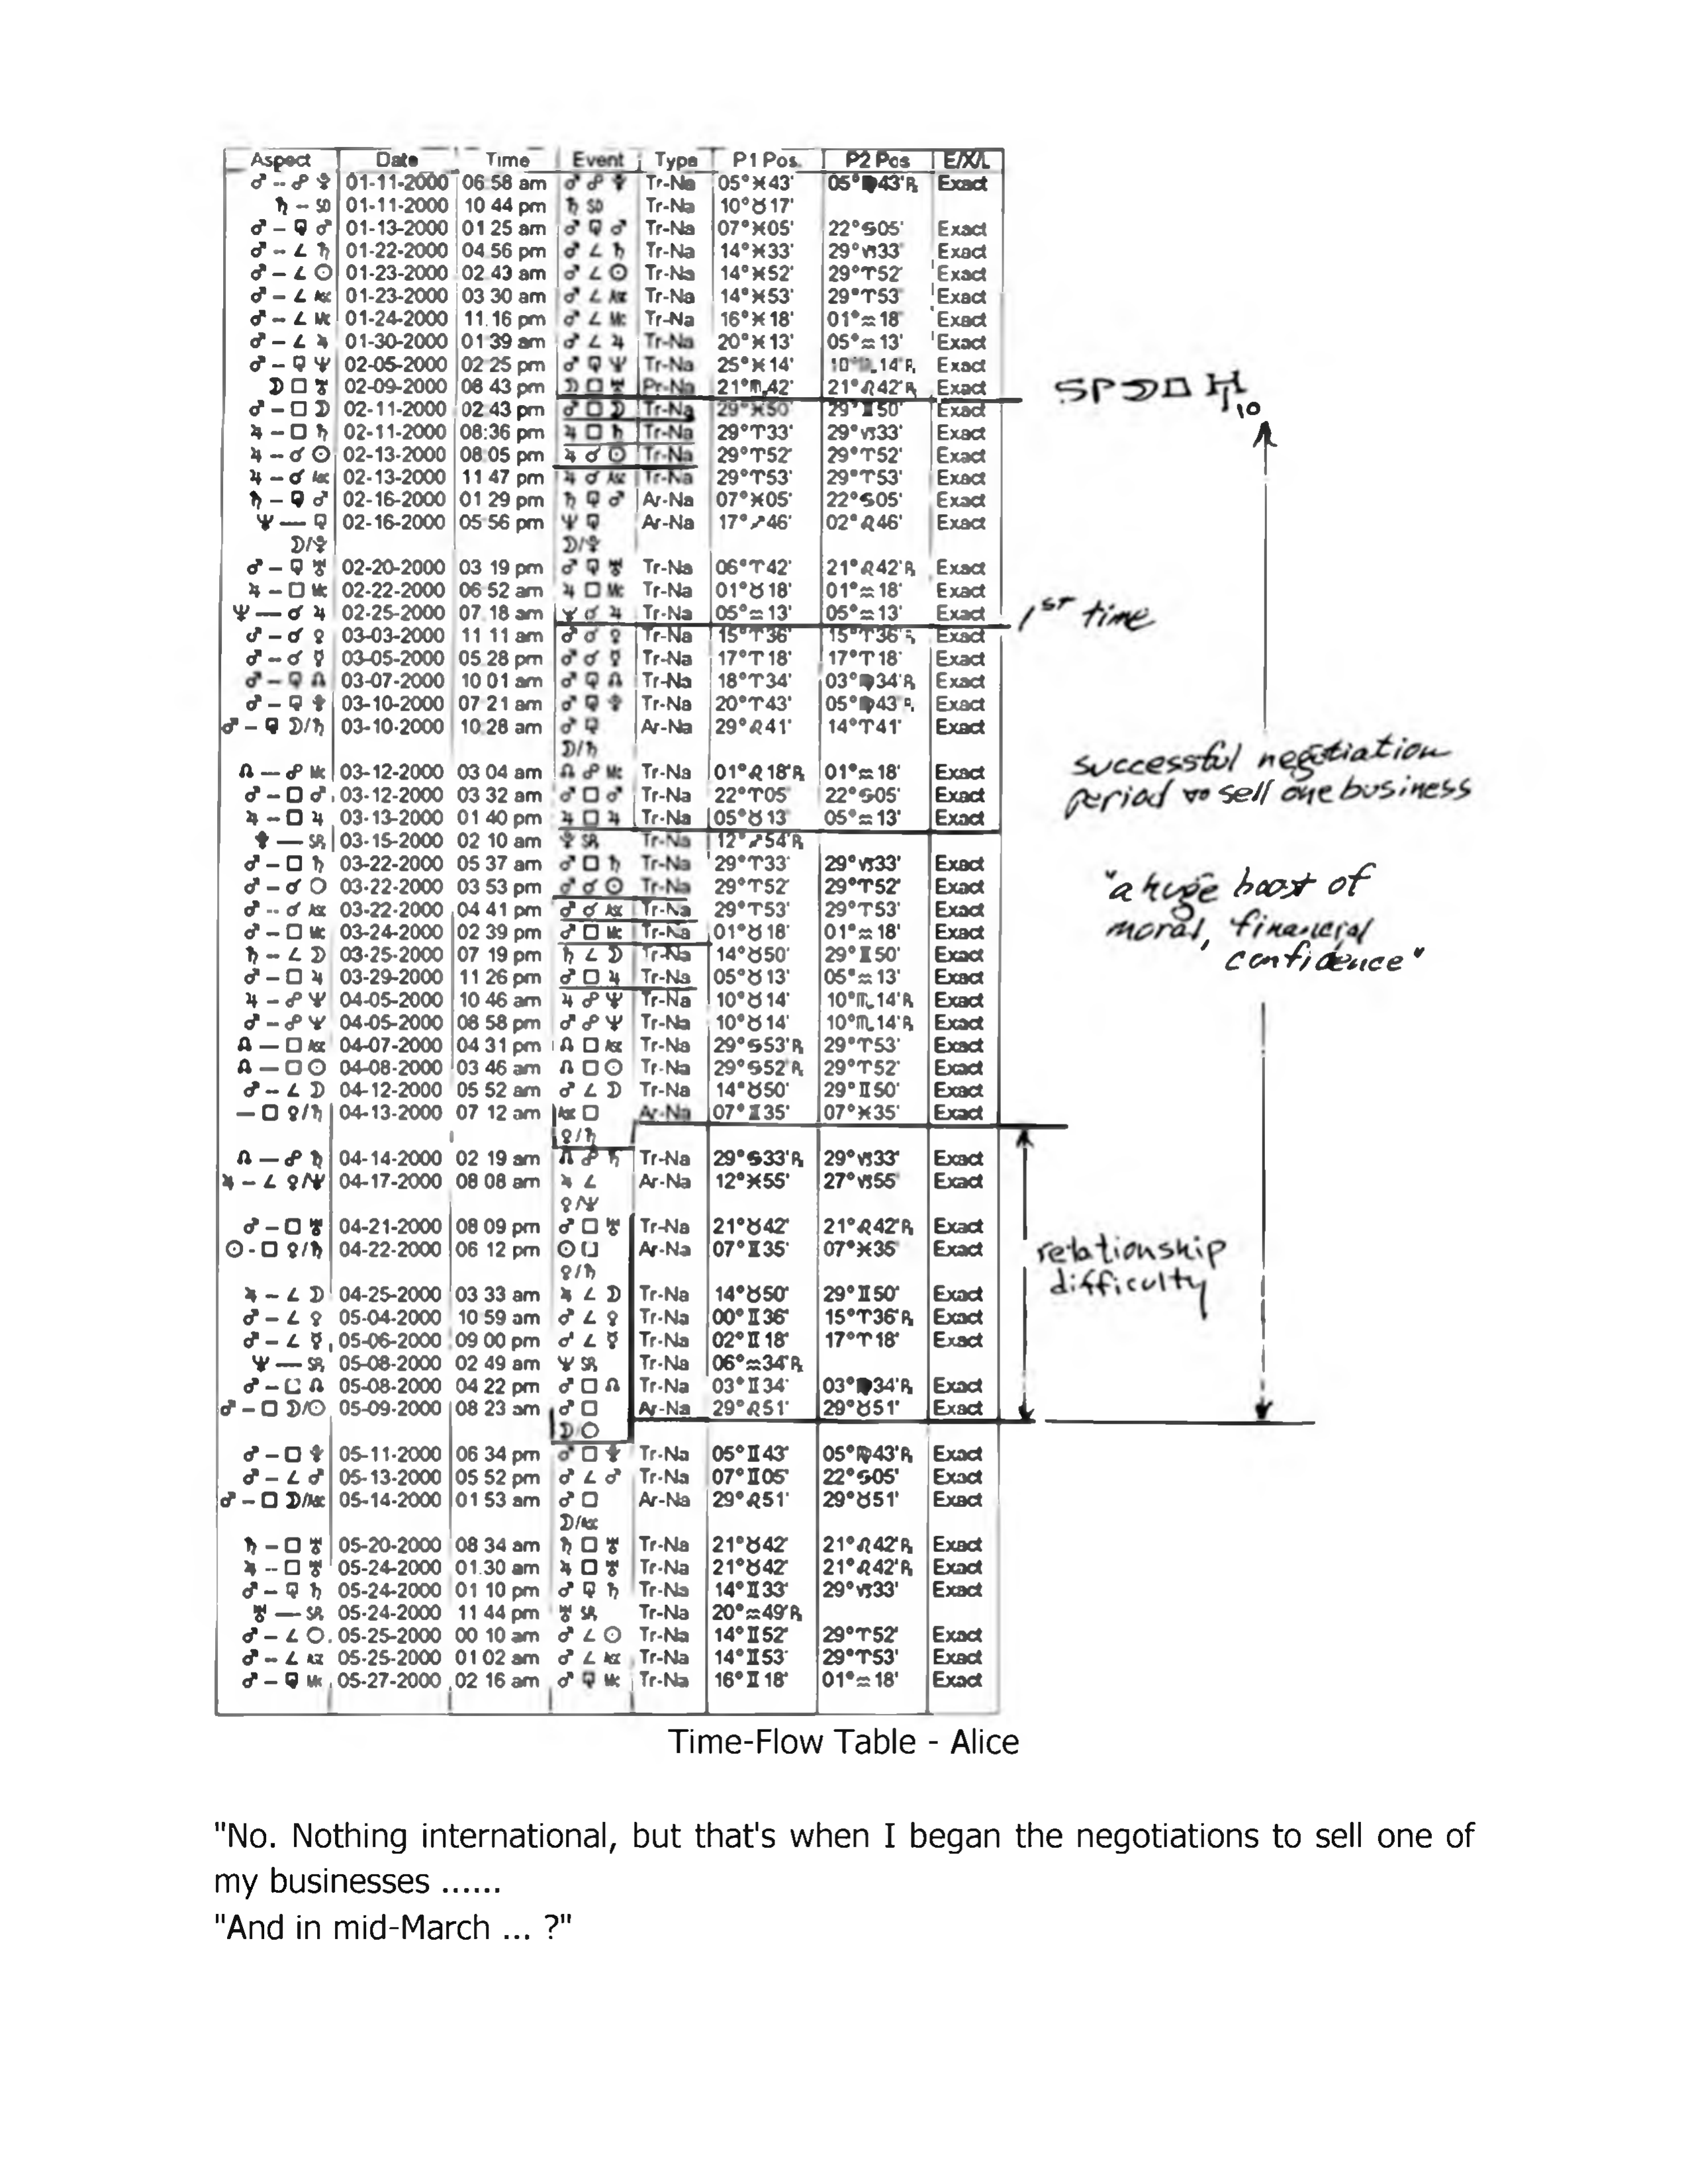 Aspect Date Time Event Type P1 Pos. P2 Pos E/X/L
♂ -- ☍ ♇ 01-11-2000 06 58 am ♂ ☍ ♇ Tr-Na 05°♓43' 05°♍43'℞ Exact
♄ -- SD 01-11-2000 10 44 pm ♄ SD Tr-Na 10°♉17'
♂ - ⚼ ♂ 01-13-2000 01 25 am ♂ ⚼ ♂ Tr-Na 07°♓05' 22°♋05' Exact
♂ - ∠ ♄ 01-22-2000 04.56 pm ♂ ∠ ♄ Tr-Na 14°♓33' 29°♑33' Exact
♂ - ∠ ☉ 01-23-2000 02 43 am ♂ ∠ ☉ Tr-Na 14°♓52' 29°♈52' Exact
♂ - ∠ Asc 01-23-2000 03 30 am ♂ ∠ Asc Tr-Na 14°♓53' 29°♈53' Exact
♂ -- ∠ Mc 01-24-2000 11.16 pm ♂ ∠ Mc Tr-Na 16°♓18' 01°♒18' Exact
♂ - ∠ ♃ 01-30-2000 01 39 am ♂ ∠ ♃ Tr-Na 20°♓13' 05°♒13' Exact
♂ - ⚼ ♆ 02-05-2000 02 25 pm ♂ ⚼ ♆ Tr-Na 25°♓14' 10°♏14'℞ Exact
☽ □ ♅ 02-09-2000 08 43 pm ☽ □ ♅ Pr-Na 21°♏42' 21°♌42'℞ Exact
SP☽□♅10
♂ - □ ☽ 02-11-2000 02:43 pm ♂ □ ☽ Tr-Na 29°♓50' 29°♊50' Exact
♃ - □ ♄ 02-11-2000 08:36 pm ♃ □ ♄ Tr-Na 29°♈33' 29°♑33' Exact
♃ - ☌ ☉ 02-13-2000 08:05 pm ♃ ☌ ☉ Tr-Na 29°♈52' 29°♈52' Exact
♃ - ☌ Asc 02-13-2000 11 47 pm ♃ ☌ Asc Tr-Na 29°♈53' 29°♈53' Exact
♄ - ⚼ ♂ 02-16-2000 01 29 pm ♄ ⚼ ♂ Ar-Na 07°♓05' 22°♋05' Exact
♆ — ⚼ 02-16-2000 05 56 pm ♆ ⚼ Ar-Na 17°♐46' 02°♌46' Exact
☽/♇ ☽/♇
♂ - ⚼ ♅ 02-20-2000 03 19 pm ♂ ⚼ ♅ Tr-Na 06°♈42' 21°♌42'℞ Exact
♃ - □ Mc 02-22-2000 06 52 am ♃ □ Mc Tr-Na 01°♉18' 01°♒18' Exact
♆ — ☌ ♃ 02-25-2000 07.18 am ♆ ☌ ♃ Tr-Na 05°♒13' 05°♒13' Exact
1st time
♂ - ☌ ♀ 03-03-2000 11 11 am ♂ ☌ ♀ Tr-Na 15°♈36' 15°♈36'℞ Exact
♂ -- ☌ ☿ 03-05-2000 05.28 pm ♂ ☌ ☿ Tr-Na 17°♈18' 17°♈18' Exact
♂ - ⚼ ☊ 03-07-2000 10 01 am ♂ ⚼ ☊ Tr-Na 18°♈34' 03°♍34'℞ Exact
♂ - ⚼ ♇ 03-10-2000 07 21 am ♂ ⚼ ♇ Tr-Na 20°♈43' 05°♍43'℞ Exact
♂ - ⚼ ☽/♄ 03-10-2000 10:28 am ♂ ⚼ Ar-Na 29°♌41' 14°♈41' Exact
☽/♄
☊ — ☍ Mc 03-12-2000 03 04 am ☊ ☍ Mc Tr-Na 01°♌18'℞ 01°♒18' Exact
♂ - □ ♂ 03-12-2000 03 32 am ♂ □ ♂ Tr-Na 22°♈05' 22°♋05' Exact
♃ - □ ♃ 03-13-2000 01 40 pm ♃ □ ♃ Tr-Na 05°♉13' 05°♒13' Exact
successful negotiation
period to sell one business
♇ — SR 03-15-2000 02 10 am ♇ SR Tr-Na 12°♐54'℞
♂ - □ ♄ 03-22-2000 05 37 am ♂ □ ♄ Tr-Na 29°♈33' 29°♑33' Exact
♂ - ☌ ☉ 03-22-2000 03 53 pm ♂ ☌ ☉ Tr-Na 29°♈52' 29°♈52' Exact
♂ -- ☌ Asc 03-22-2000 04 41 pm ♂ ☌ Asc Tr-Na 29°♈53' 29°♈53' Exact
♂ - □ Mc 03-24-2000 02 39 pm ♂ □ Mc Tr-Na 01°♉18' 01°♒18' Exact
♄ -- ∠ ☽ 03-25-2000 07 19 pm ♄ ∠ ☽ Tr-Na 14°♉50' 29°♊50' Exact
♂ - □ ♃ 03-29-2000 11 26 pm ♂ □ ♃ Tr-Na 05°♉13' 05°♒13' Exact
"a huge boost of
moral, financial
confidence"
♃ - ☍ ♆ 04-05-2000 10 46 am ♃ ☍ ♆ Tr-Na 10°♉14' 10°♏14'℞ Exact
♂ - ☍ ♆ 04-05-2000 08 58 pm ♂ ☍ ♆ Tr-Na 10°♉14' 10°♏14'℞ Exact
☊ — □ Asc 04-07-2000 04 31 pm ☊ □ Asc Tr-Na 29°♋53'℞ 29°♈53' Exact
☊ — □ ☉ 04-08-2000 03 46 am ☊ □ ☉ Tr-Na 29°♋52'℞ 29°♈52' Exact
♂ -- ∠ ☽ 04-12-2000 05 52 am ♂ ∠ ☽ Tr-Na 14°♉50' 29°♊50' Exact
— □ ♀/♄ 04-13-2000 07 12 am Asc □ Ar-Na 07°♊35' 07°♓35' Exact
♀/♄
☊ — ☍ ♄ 04-14-2000 02 19 am ☊ ☍ ♄ Tr-Na 29°♋33'℞ 29°♑33' Exact
♃ - ∠ ♀/♆ 04-17-2000 08 08 am ♃ ∠ Ar-Na 12°♓55' 27°♑55' Exact
♀/♆
♂ - □ ♅ 04-21-2000 08 09 pm ♂ □ ♅ Tr-Na 21°♉42' 21°♌42'℞ Exact
☉ - □ ♀/♄ 04-22-2000 06 12 pm ☉ □ Ar-Na 07°♊35' 07°♓35' Exact
♀/♄
relationship
difficulty
♃ - ∠ ☽ 04-25-2000 03 33 am ♃ ∠ ☽ Tr-Na 14°♉50' 29°♊50' Exact
♂ - ∠ ♀ 05-04-2000 10 59 am ♂ ∠ ♀ Tr-Na 00°♊36' 15°♈36'℞ Exact
♂ - ∠ ☿ 05-06-2000 09 00 pm ♂ ∠ ☿ Tr-Na 02°♊18' 17°♈18' Exact
♆ — SR 05-08-2000 02 49 am ♆ SR Tr-Na 06°♒34'℞
♂ - □ ☊ 05-08-2000 04 22 pm ♂ □ ☊ Tr-Na 03°♊34' 03°♍34'℞ Exact
♂ - □ ☽/☉ 05-09-2000 08 23 am ♂ □ Ar-Na 29°♌51' 29°♉51' Exact
☽/☉
♂ - □ ♇ 05-11-2000 06 34 pm ♂ □ ♇ Tr-Na 05°♊43' 05°♍43'℞ Exact
♂ - ∠ ♂ 05-13-2000 05 52 pm ♂ ∠ ♂ Tr-Na 07°♊05' 22°♋05' Exact
♂ - □ ☽/Asc 05-14-2000 01 53 am ♂ □ Ar-Na 29°♌51' 29°♉51' Exact
☽/Asc
♄ - □ ♅ 05-20-2000 08 34 am ♄ □ ♅ Tr-Na 21°♉42' 21°♌42'℞ Exact
♃ -- □ ♅ 05-24-2000 01.30 am ♃ □ ♅ Tr-Na 21°♉42' 21°♌42'℞ Exact
♂ - ⚼ ♄ 05-24-2000 01 10 pm ♂ ⚼ ♄ Tr-Na 14°♊33' 29°♑33' Exact
♅ — SR 05-24-2000 11 44 pm ♅ SR Tr-Na 20°♒49'℞
♂ - ∠ ☉ 05-25-2000 00 10 am ♂ ∠ ☉ Tr-Na 14°♊52' 29°♈52' Exact
♂ -- ∠ Asc 05-25-2000 01 02 am ♂ ∠ Asc Tr-Na 14°♊53' 29°♈53' Exact
♂ - ⚼ Mc 05-27-2000 02 16 am ♂ ⚼ Mc Tr-Na 16°♊18' 01°♒18' Exact
Time-Flow Table - Alice
"No. Nothing international, but that's when I began the negotiations to sell one of
my businesses ......
"And in mid-March ... ?"